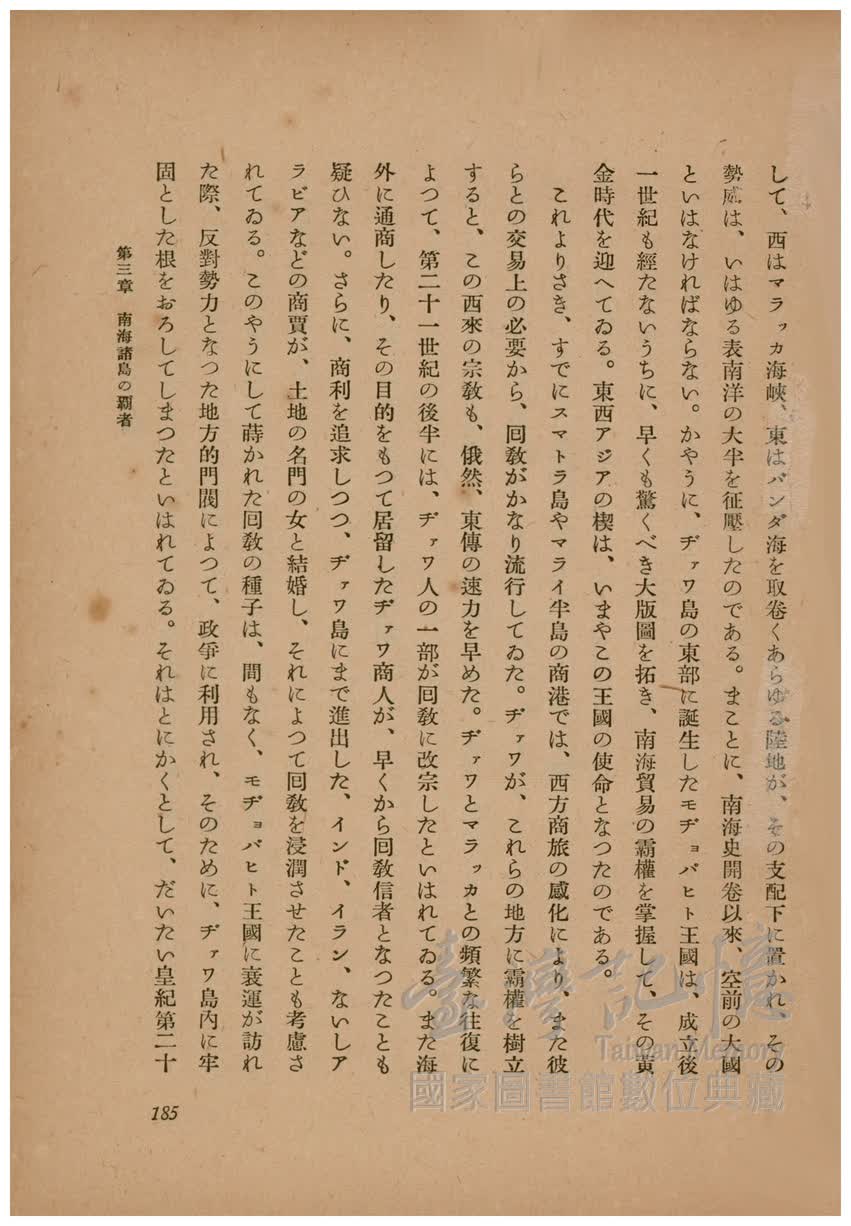 して、西はマラッカ海峽、東はバンダ海を取卷くあらゆる陸地が、その支配下に置かれ、その
勢威は、いはゆる表南洋の大半を征壓したのである。まことに、南海史開卷以來、空前の大國
といはなければならない。かやうに、ヂァワ島の東部に誕生したモヂョパヒト王國は、成立後
一世紀も經たないうちに、早くも驚くべき大版圖を拓き、南海貿易の霸權を掌握して、その黃
金時代を迎へてゐる。東西アジアの楔は、いまやこの王國の使命となつたのである。
これよりさき、すでにスマトラ島やマライ半島の商港では、西方商旅の感化により、また彼
らとの交易上の必要から、回敎がかなり流行してゐた。ヂァワが、これらの地方に霸權を樹立
すると、この西來の宗敎も、俄然、東傳の速力を早めた。ヂァワとマラッカとの頻繁な往復に
よつて、第二十一世紀の後半には、ヂァワ人の一部が回敎に改宗したといはれてゐる。また海
外に通商したり、その目的をもつて居留したヂァワ商人が、早くから回敎信者となつたことも
疑ひない。さらに、商利を追求しつつ、ヂァワ島にまで進出した、インド、イラン、ないしア
ラビアなどの商賈が、土地の名門の女と結婚し、それによつて回敎を浸潤させたことも考慮さ
れてゐる。このやうにして蒔かれた回敎の種子は、間もなく、モヂョパヒト王國に衰運が訪れ
た際、反對勢力となつた地方的門閥によつて、政爭に利用され、そのために、ヂァワ島內に牢
固とした根をおろしてしまつたといはれてゐる。それはとにかくとして、だいたい皇紀第二十
第三章 南海諸島の覇者
185
臺灣記憶
Taiwan Memory
國家圖書館數位典藏